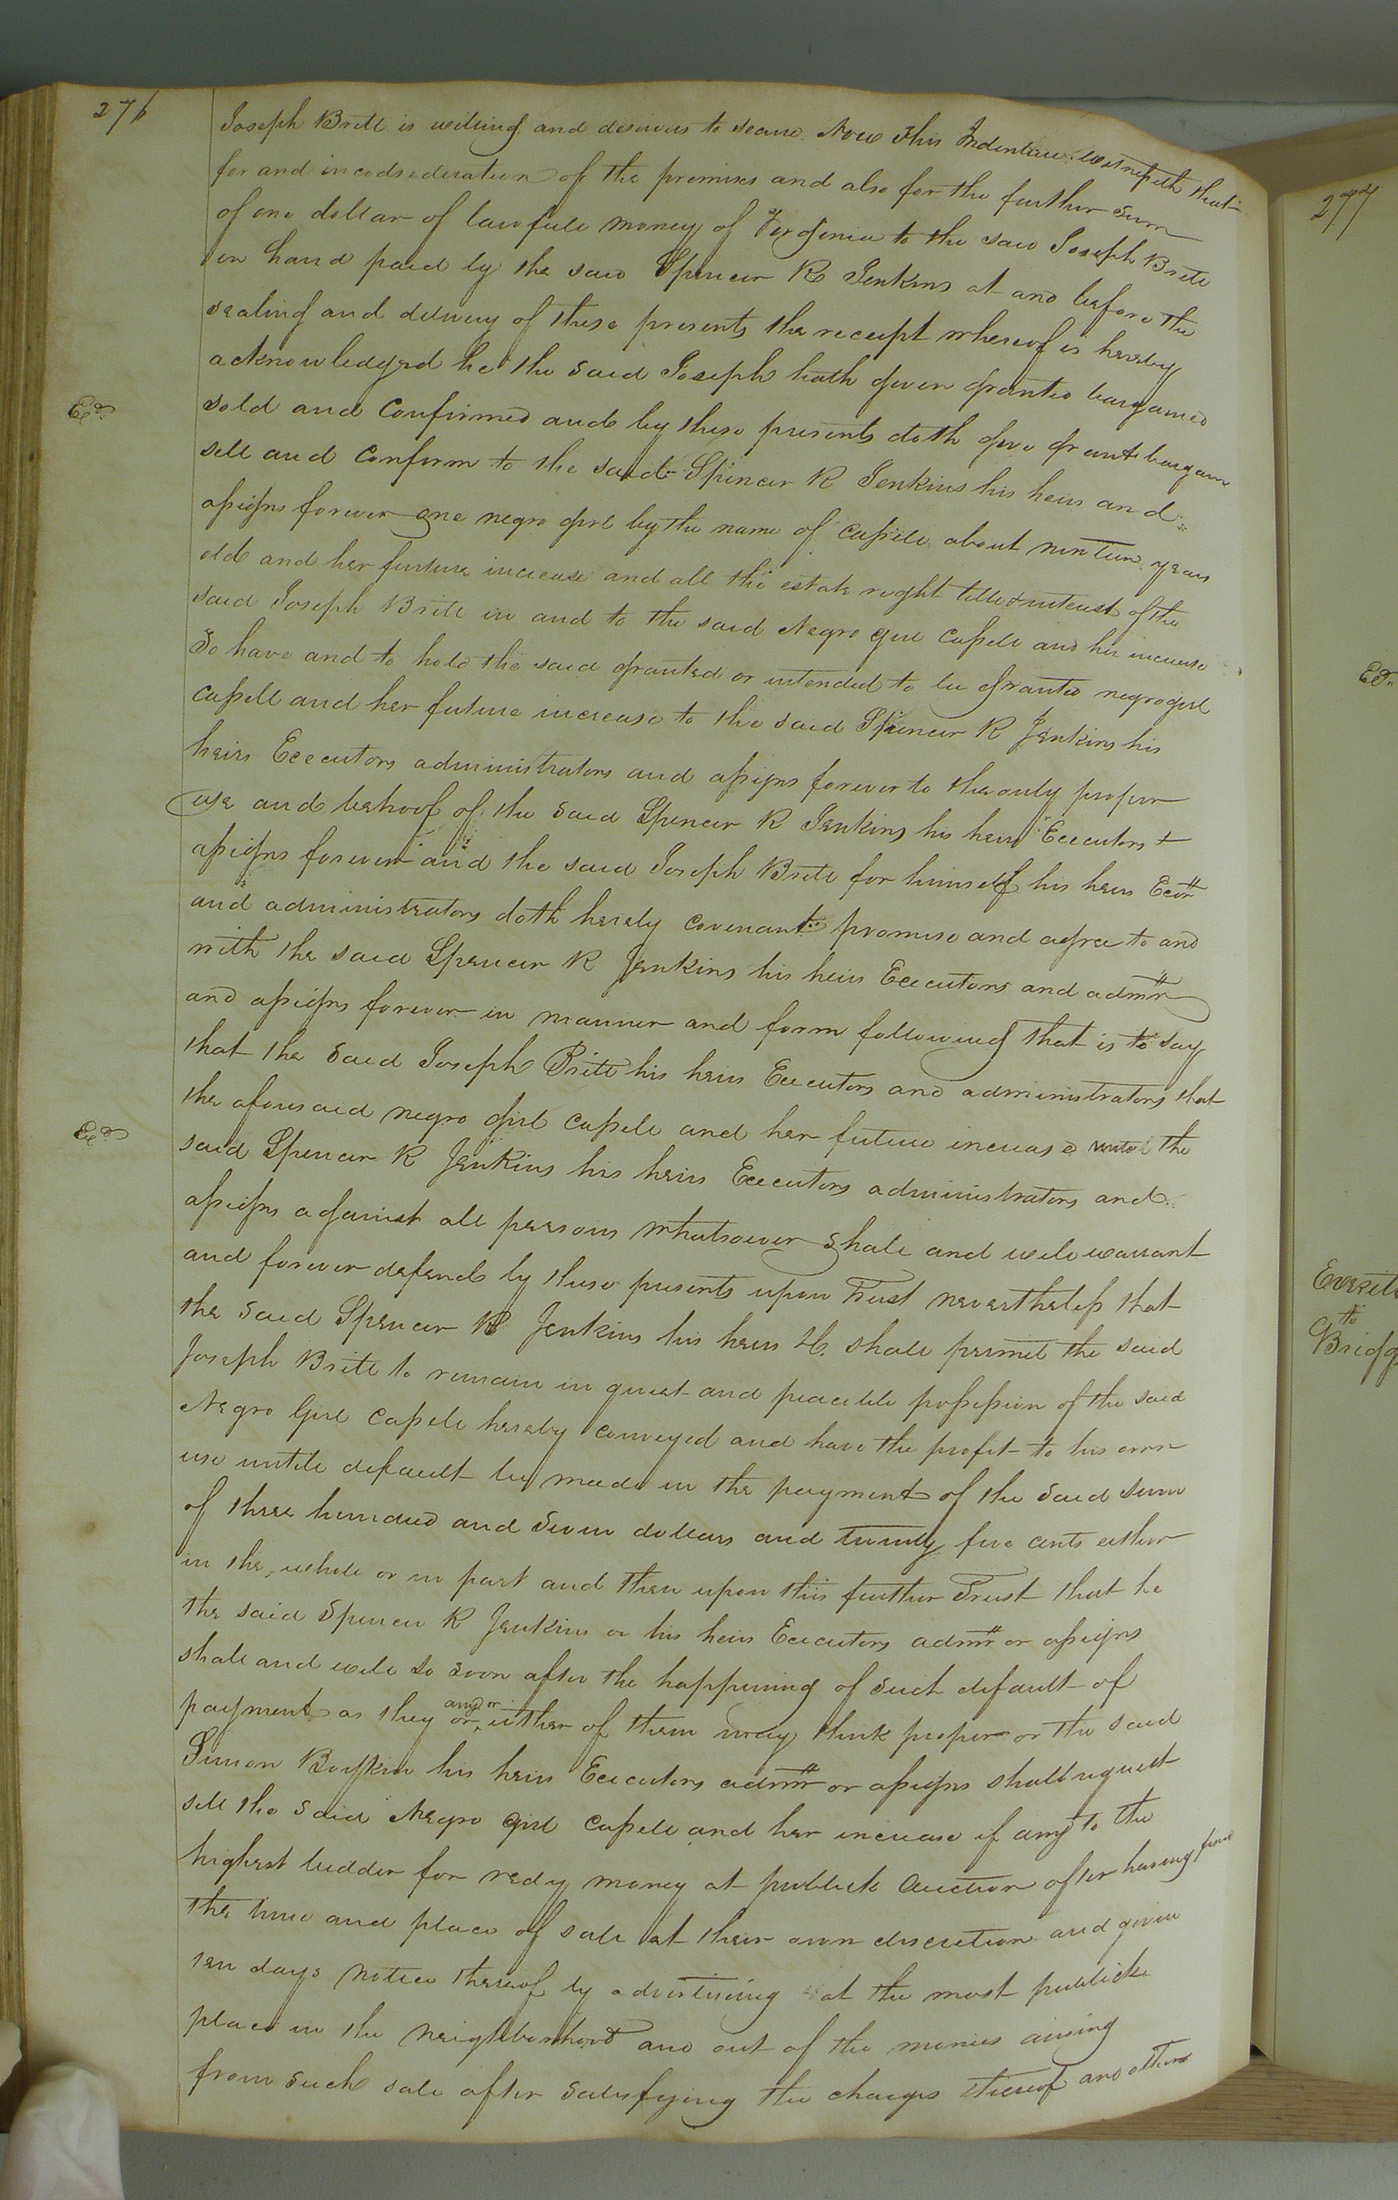 276
Joseph Britt is willing and desirous to secure. Now This Indenture witnesseth that
for and in codsideration of the premises and also for the further Sum
of one dollar of lawfull money of Virginia to the said Joseph Britt
in hand paid by the said Spencer R Jenkins at and before the
sealing and delivery of these presents the receipt whereof is hereby
acknowledged he the said Joseph hath given granted bargained
sold and Confirmed and by these presents doth give grant bargain
sell and Confirm to the said Spencer R Jenkins his heirs and
assigns forever one negro girl by the name of Cassell about ninteen years
old and her furture increase and all the estate right title & interest of the
said Joseph Britt in and to the said Negro girl Cassell and her increase
To have and to hold the said granted or intended to be granted negro girl
Cassell and her future increase to the said Spencer R Jenkins his
heirs Executors administrators and assigns forever to the only proper
use and behoof of the said Spencer R Jenkins his heirs Executors &
assigns forever and the said Joseph Britt for himself his heirs Exors
and administrators doth hereby covenant promise and agree to and
with the said Spencer R Jenkins his heirs Executors and admrs
and assigns forever in manner and form following that is to say
that the said Joseph Britt his heirs Executors and administrators that
the aforesaid negro girl Cassell and her future increase unto the
said Spencer R Jenkins his heirs Executors administrators and
assigns against all persons whatsoever shall and will warrant
and forever defend by these presents upon Trust nevertheless that
the said Spencer R Jenkins his heirs &c. shall permit the said
Joseph Britt to remain in quiet and peacible possession of the said
Negro Girl Cassell hereby conveyed and have the profit to his own
use untill default be made in the payment of the said sum
of three hundred and Seven dollars and twenty five cents either
in the whole or in part and then upon this further Trust that he
the said Spencer R Jenkins or his heirs Executors admrs or assigns
shall and will so soon after the happening of such default of
payment as they or any or either of them may think proper or the said
Simon Boykin his heirs Executors admrs or assigns shall request
sell the said Negro girl Cassell and her increase if any to the
highest bidder for redy money at publick Auction after having fixed
the time and place of sale at their own discretion and given
ten days notice thereof by advertising at the most publick
place in the neighborhood and out of the monies arising
from such sale after satisfying the charges thereof and others
Ex.d
Ex.d
277
Ex.d
to